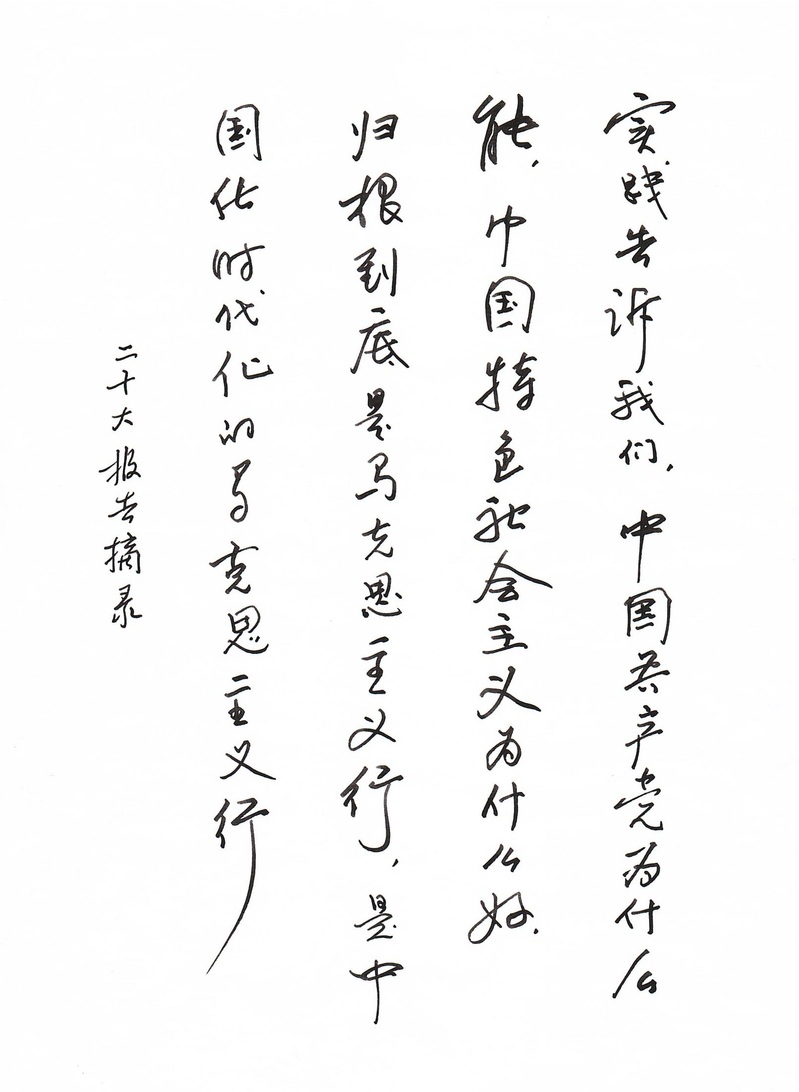 实践告诉我们,中国共产党为什么
能,中国特色社会主义为什么好,
归根到底是马克思主义行,是中
国化时代化的马克思主义行
二十大报告摘录